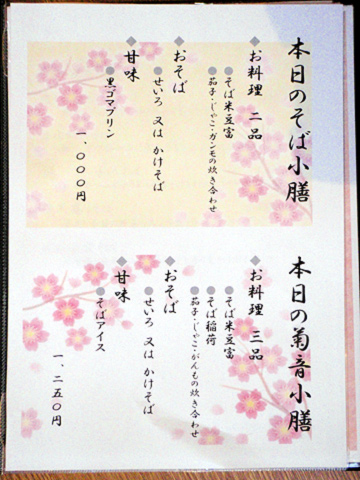 本日のそば小膳
◆お料理 二品
●そば米豆富
●茄子・じゃこ・ガンモの炊き合わせ
◆おそば
●せいろ 又は かけそば
◆甘味
●黒ゴマプリン
一、〇〇〇円
本日の菊音小膳
◆お料理 三品
●そば米豆富
●そば稲荷
●茄子・じゃこ・がんもの炊き合わせ
◆おそば
●せいろ 又は かけそば
◆甘味
●そばアイス
一、二五〇円